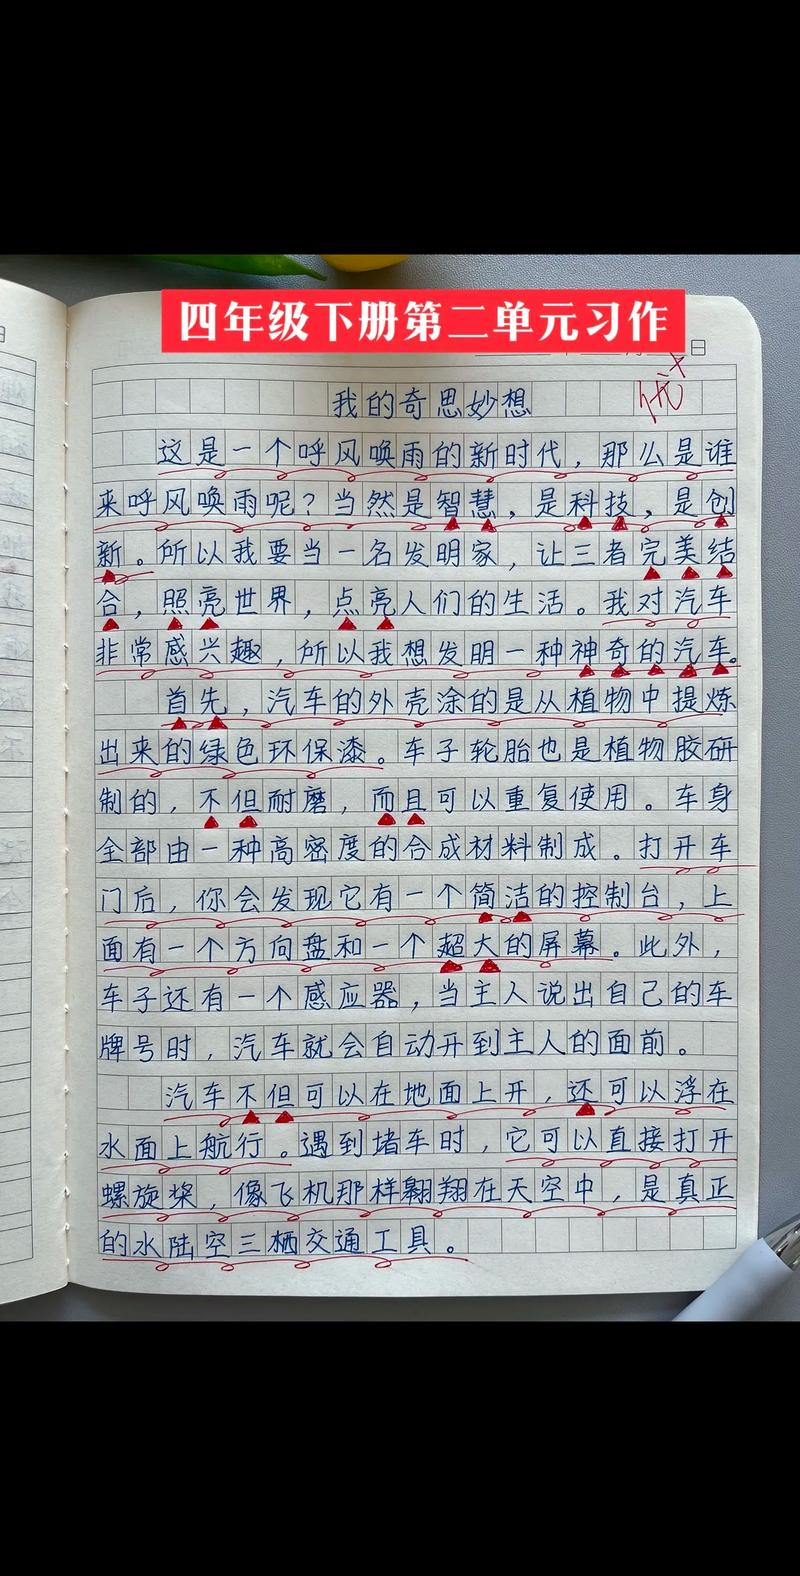 四年级下册第二单元习作
日
优+
我的奇思妙想
这是一个呼风唤雨的新时代，那么是谁
来呼风唤雨呢？当然是智慧，是科技，是创
新。所以我要当一名发明家，让三者完美结
合，照亮世界，点亮人们的生活。我对汽车
非常感兴趣，所以我想发明一种神奇的汽车。
首先，汽车的外壳涂的是从植物中提炼
出来的绿色环保漆。车子轮胎也是植物胶研
制的，不但耐磨，而且可以重复使用。车身
全部由一种高密度的合成材料制成。打开车
门后，你会发现它有一个简洁的控制台，上
面有一个方向盘和一个超大的屏幕。此外，
车子还有一个感应器，当主人说出自己的车
牌号时，汽车就会自动开到主人的面前。
汽车不但可以在地面上开，还可以浮在
水面上航行。遇到堵车时，它可以直接打开
螺旋桨，像飞机那样翱翔在天空中，是真正
的水陆空三栖交通工具。